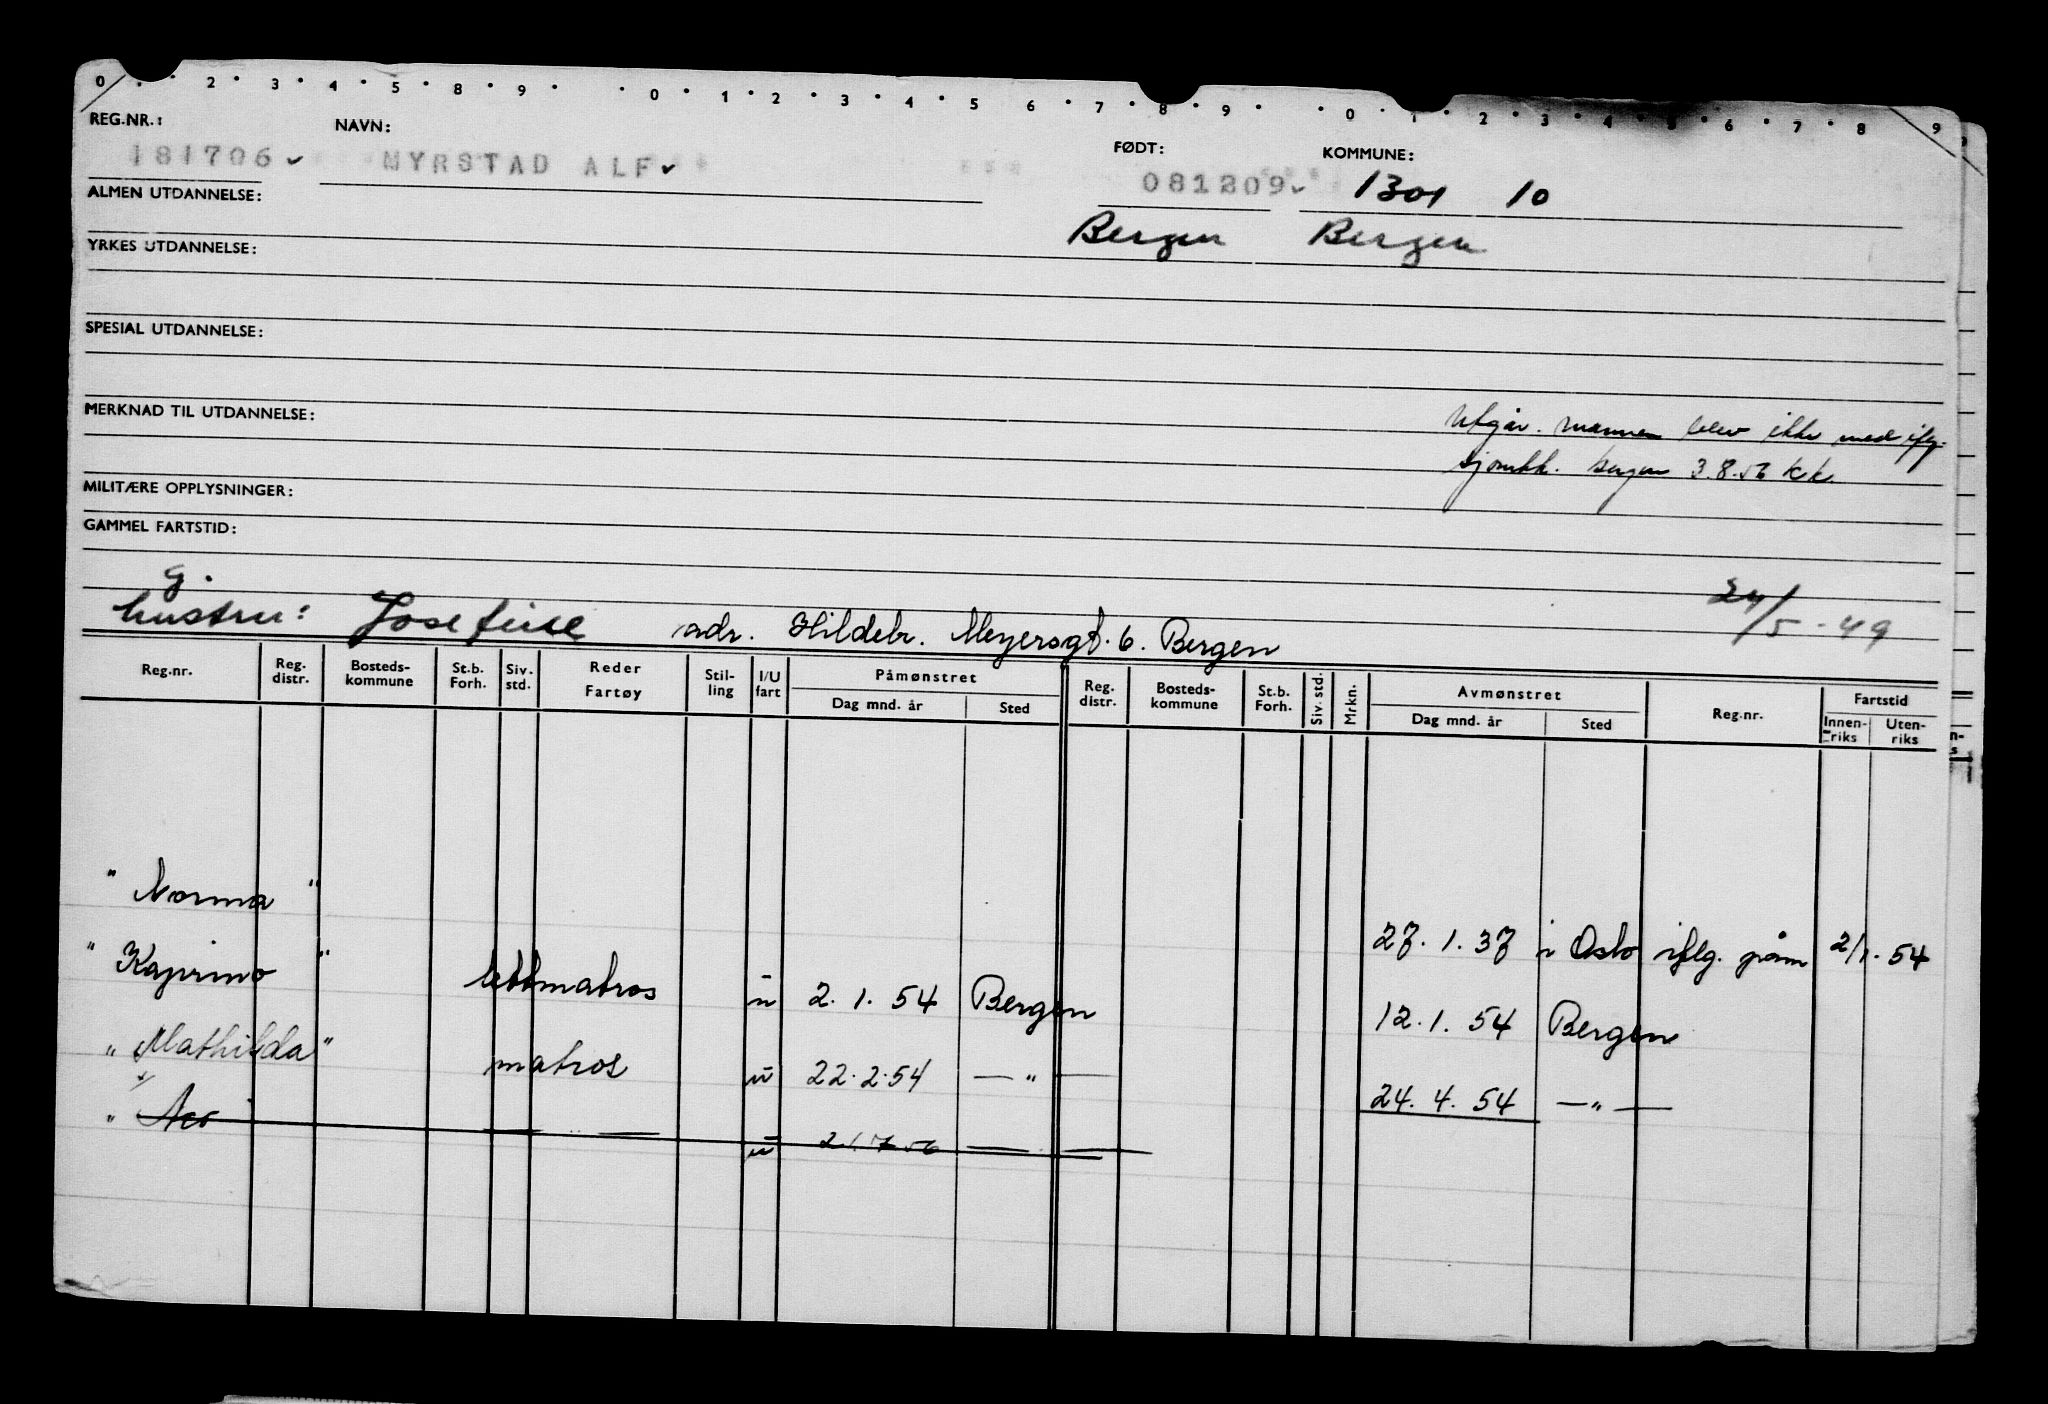 0 . . 2 . 3 . 4 . 5 . 8 . 9 . . 0 . 1 . 2 . 3 . 4 . 5 6 . 7 . 8 . 9 . . 0 . 1 . 2 . 3 . 4 . 5 . 6 . 7 . 8 9
REG.NR.: NAVN: FØDT: KOMMUNE:
181706 MYRSTAD ALF 081209 1301 10
ALMEN UTDANNELSE:
Bergen Bergen
YRKES UTDANNELSE:
SPESIAL UTDANNELSE:
MERKNAD TIL UTDANNELSE:
Utgår. mannen blev ikke med iflg.
sjømkk. bergen 3.8.56 kk.
MILITÆRE OPPLYSNINGER:
GAMMEL FARTSTID:
g.
hustru: Josefine adr. Hildebr. Meyersgt. 6. Bergen 24/5-49
Reg.nr. Reg. distr. Bosteds-kommune St.b. Forh. Siv. std. Reder Fartøy Stil-ling I/U fart Påmønstret Dag mnd. år Sted Reg. distr. Bosteds-kommune St.b. Forh. Siv. std. Mrkn. Avmønstret Dag mnd. år Sted Reg.nr. Fartstid Innen-riks Uten-riks
" Norma " 27.1.37 i Oslo iflg. påm 2/1.54
" Kaprino " lettmatros u 2.1.54 Bergen 12.1.54 Bergen
" Mathilda " matros u 22.2.54 — " — 24.4.54 — " —
" — " — u — —